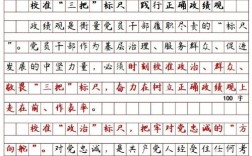 校准“三把”标尺 践行正确政绩观
政绩观是衡量党员干部履职尽责的“标尺
”。党员干部作为基层治理、服务群众、促进
发展的中坚力量，必须时刻校准政治、群众、
敬畏“三把”标尺，奋力在树立正确政绩观上
走在前、作表率。
100字
校准“政治”标尺，把牢对党忠诚的“方
向舵”。对党忠诚，是共产党人经受住任何考